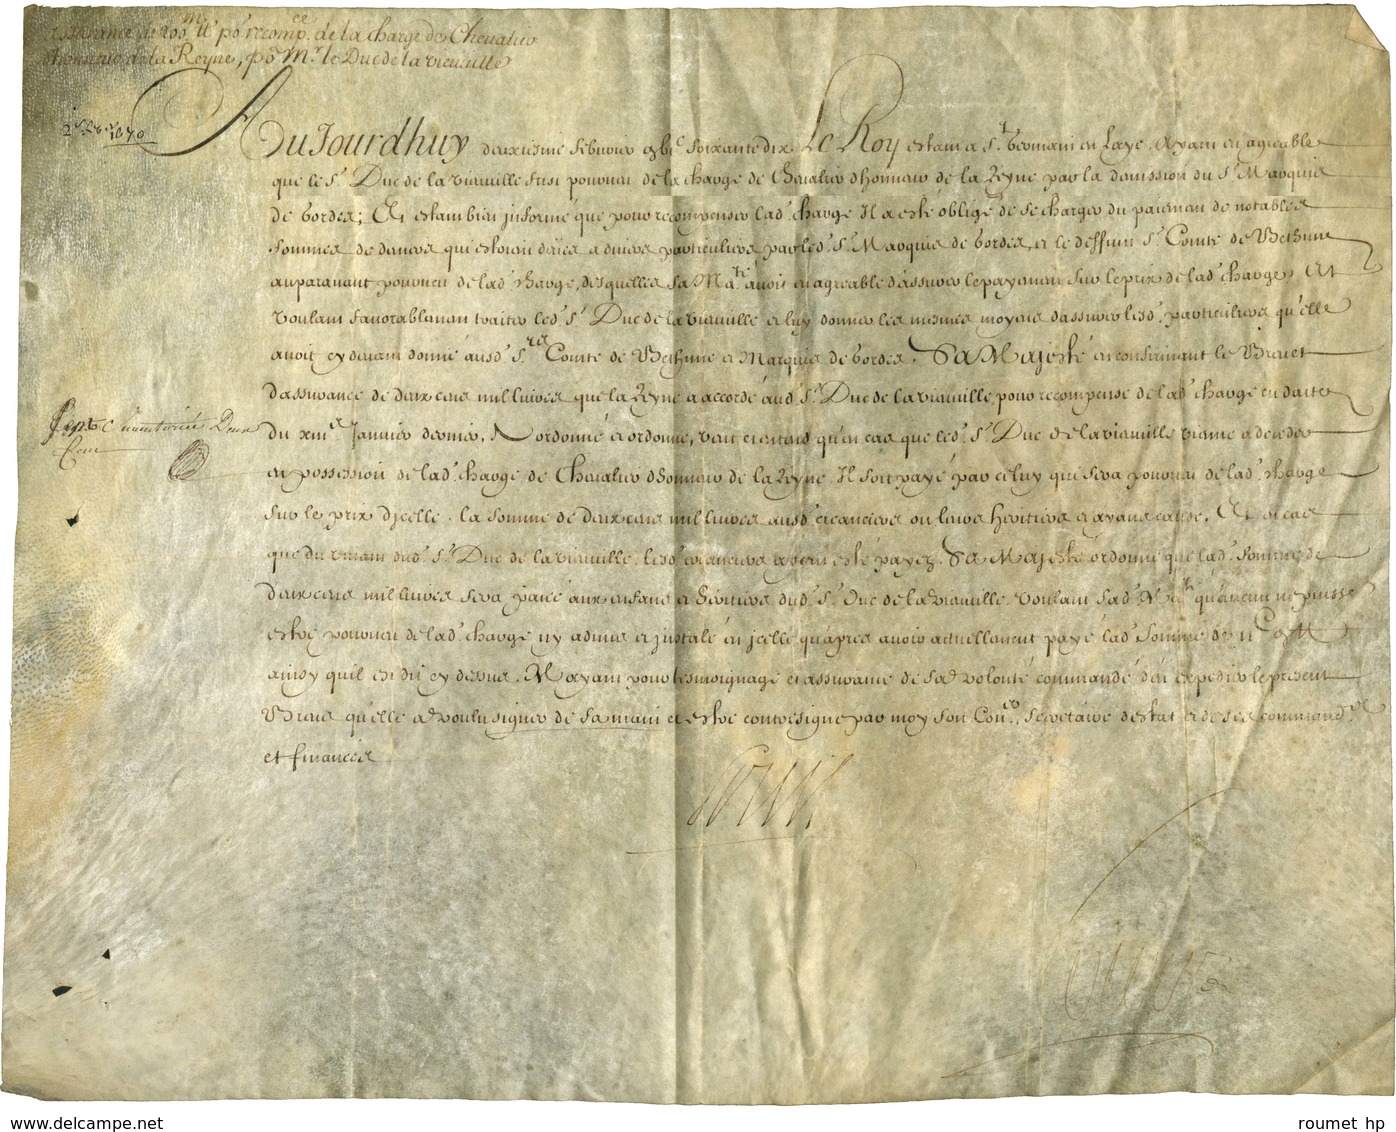 assurance de 200m lt po. recompce. de la charge de Chevalier
dhonneur de la Reyne, po. Mr. le Duc de la vieuville
2e feb.er 1670
AuJourdhuy deuxiesme febvrier gbic soixante dix Le Roy estant a St. Germain en Laye, Ayant eu agreable
que le Sr. Duc de la vieuville fust pourveu de la charge de Chevalier dhonneur de la Reyne par la demission du Sr. Marquis
de Gordes; Et estant bien informé que pour recompenser lad. charge Il a esté obligé de se charger du paiement de notables
sommes de deniers qui estoient deües a divers particuliers par led. Sr. Marquis de Gordes, et le deffunt Sr. Comte de Bethune
auparavant pourveu de lad. charge, desquelles Sa Maté. avoit eu agreable d'assurer le payement sur le prix de lad. charge, Et
voulant favorablement traiter led. Sr. Duc de la vieuville et luy donner les mesmes moyens dassurer lesd. particuliers qu'elle
avoit cy devant donné ausd. Srs. Comte de Bethune et Marquis de Gordes. Sa Majesté en confirmant le Brevet
dassurance de deux cens mil livres que la Reyne a accordé aud. Sr. Duc de la vieuville pour recompense de lad. charge en datte
du xiiie. Janvier dernier, A ordonné et ordonne, veut et entend qu'en cas que led. Sr. Duc de la vieuville vienne a deceder
en possession de lad. charge de Chevalier dhonneur de la Reyne. Il soit payé par celuy qui sera pourveu de lad. charge
sur le prix d'jcelle la somme de deux cens mil livres ausd. creanciers ou leurs heritiers et ayans cause. Et en cas
que du vivant dud. Sr. Duc de la vieuville lesd. creanciers ayent esté payez, Sa Majesté ordonne que lad. somme de
deux cens mil livres sera payée aux enfans et heritiers dud. Sr. Duc de la vieuville, voulant Sad. Maté. qu'aucun ne puisse
estre pourveu de lad. charge ny admis et jnstalé en jcelle qu'apres avoir actuellement payé lad. somme de IIC M
ainsy quil est dit cy dessus. M'ayant pour tesmoignage et assurance de sad. volonté commandé d'en expedier le present
Brevet qu'elle a voulu signer de sa main et estre contresigné par moy son Coner. Secretaire destat et de ses commandts.
et finances
Louis